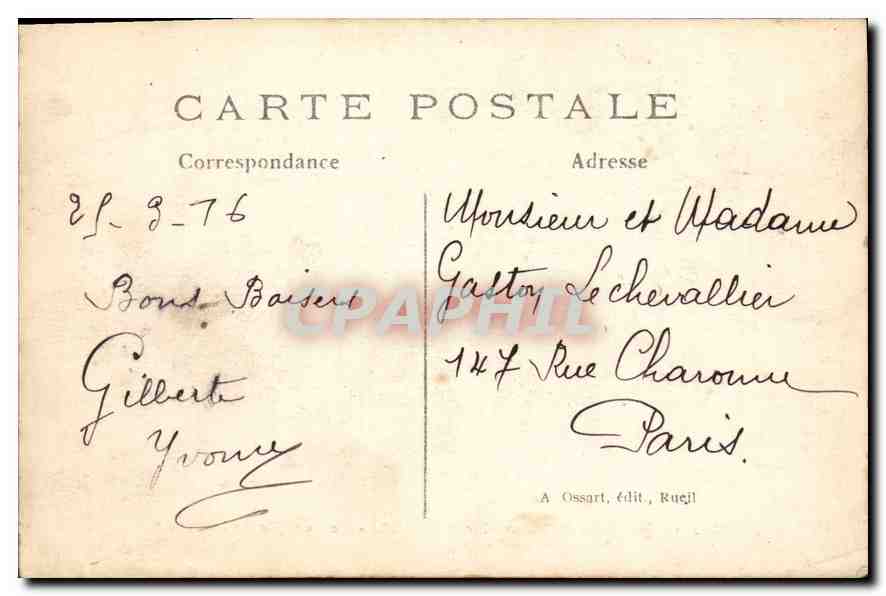 CARTE POSTALE
Correspondance
Adresse
25-9-16
Bons Baisers
Gilberte
Yvonne
Monsieur et Madame
Gaston Lechevallier
147 Rue Charonne
Paris.
A Ossart, édit., Rueil
CPAPHIL